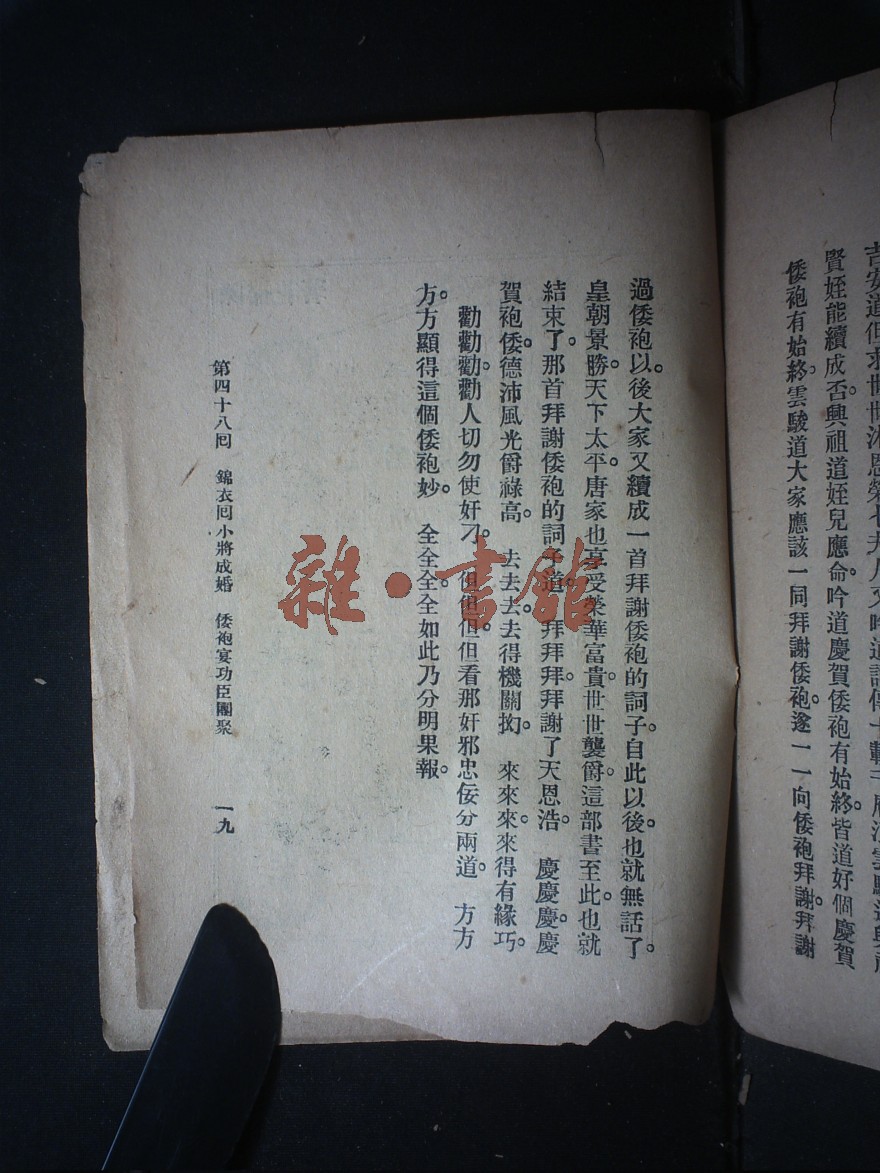 吉安道但求世世沐恩榮七夫人又吟道詩傳十載
賢姪能續成否興祖道姪兒應命吟道慶賀倭袍有始終皆道好個慶賀
倭袍有始終雲駿道大家應該一同拜謝倭袍遂一一向倭袍拜謝拜謝
過倭袍以後大家又續成一首拜謝倭袍的詞子自此以後也就無話了
皇朝景勝天下太平唐家也享受榮華富貴世世襲爵這部書至此也就
結束了那首拜謝倭袍的詞子道拜拜拜拜謝了天恩浩 慶慶慶慶
賀袍倭德沛風光爵祿高 去去去去得機關抝 來來來來得有緣巧
勸勸勸勸人切勿使奸刁 但但但但看那奸邪忠佞分兩道 方方
方方顯得這個倭袍妙 全全全全如此乃分明果報
第四十八囘 錦衣囘小將成婚 倭袍宴功臣團聚 一九
雜·書館